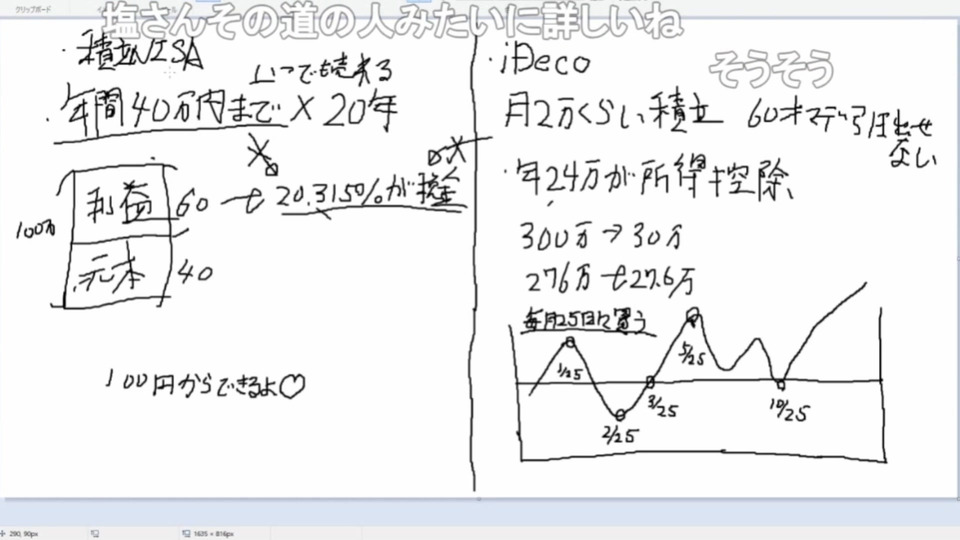 クリップボード
塩さんその道の人みたいに詳しいね
そうそう
・積立NISA
いつでも売れる
・年間40万円まで×20年
100万
利益 60 → 20.315%が税金
元本 40
100円からできるよ♡
・iDeco
月2万くらい積立 60才マデ引き出せない
・年24万が所得控除
300万→30万
276万→27.6万
毎月25日に買う
1/25
2/25
3/25
5/25
10/25
290, 90px
1635 × 816px